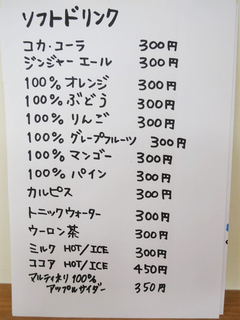 ソフトドリンク
コカ・コーラ 300円
ジンジャーエール 300円
100% オレンジ 300円
100% ぶどう 300円
100% りんご 300円
100% グレープフルーツ 300円
100% マンゴー 300円
100% パイン 300円
カルピス 300円
トニックウォーター 300円
ウーロン茶 300円
ミルク HOT/ICE 300円
ココア HOT/ICE 450円
マルティネリ 100%
アップルサイダー 350円